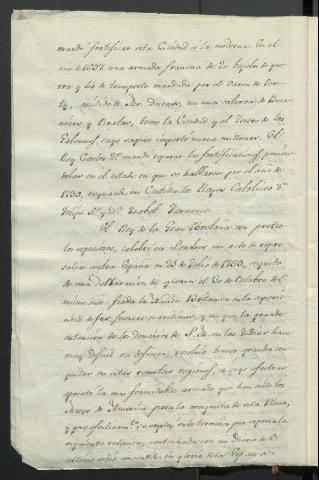 mandó fortificar esta Ciudad á la moderna En el
año de 1697 una armada francesa de 20 bageles de gue-
rra y 46 de transporte mandada por el Baron de Poin-
ty, auxiliado de Mr. Ducas, con una colonia de Buca-
niers y Piratas, tomo la Ciudad y el Tesoro de los
Galeones, cuyo saqueo importó nueve millones. El
Rey Carlos 2º mandó reparar las fortificaciones, ponien-
dolas en el estado en que se hallaron por el año de
1730, reynando en Castilla los Reyes Catolicos Dn
Felipe 5º y Dª Isabel Farnesio.
El Rey de la Gran Bretaña con pretex-
tos especiosos, celebró en Londres un acto de repre-
salias contra España en 23 de Julio de 1739, seguida
de una declaracion de guerra el 30 de Octubre del
mismo año: fiada la Nacion Britanica en la superio-
ridad de sus fuerzas maritimas, y en que la grande
extension de los dominios de S. M. en las Indias hace
muy dificil su defensa, resolvió hacer grandes con-
quistas en estas remotas regiones, á cuyo efecto se
aprontó la mas formidable armada que han visto los
Mares de America para la conquista de esta Plaza,
y que efectivamte. se empleó en los terminos que expresa la
siguiente relacion, continuada con un Diario de lo